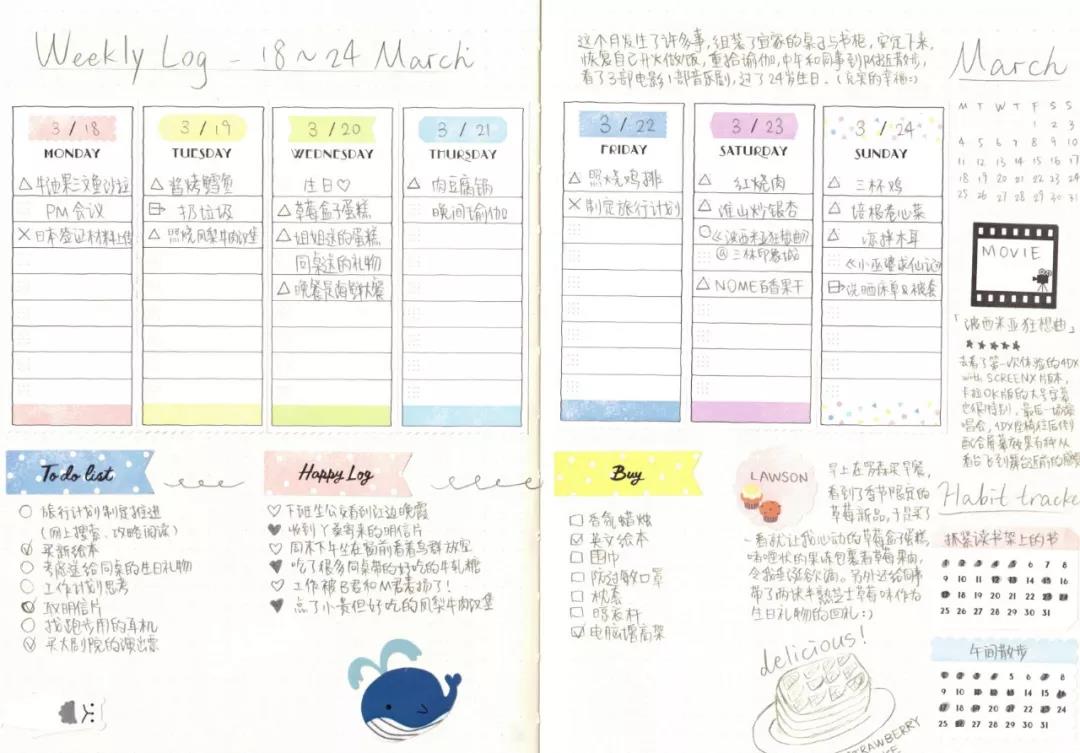 Weekly Log - 18~24 March
3 / 18
MONDAY
牛油果三文鱼沙拉
PM会议
日本签证材料上传
3 / 19
TUESDAY
酱烤鳕鱼
扔垃圾
照烧凤梨牛肉汉堡
3 / 20
WEDNESDAY
生日♡
草莓盒子蛋糕
姐姐送的蛋糕
同桌送的礼物
晚餐是海鲜大餐
3 / 21
THURSDAY
肉豆腐锅
晚间瑜伽
To do list
旅行计划制定推进
(网上搜索、攻略阅读)
买新绘本
考虑送给同桌的生日礼物
工作计划思考
取明信片
找跑步用的耳机
买大剧院的演出票
Happy Log
下班坐公交看到江边晚霞
收到丫桑寄来的明信片
周末下午坐在窗前看着鸟群放空
吃了很多同桌带的好吃的牛轧糖
工作被B君和M君表扬了!
点了小贵但好吃的凤梨牛肉汉堡
这个月发生了许多事,组装了宜家的桌子与书柜,安定下来,
恢复自己开火做饭,重拾瑜伽,中午和同事到附近散步,
看了3部电影1部音乐剧,过了24岁生日.(充实的幸福:)
3 / 22
FRIDAY
照烧鸡排
制定旅行计划
3 / 23
SATURDAY
红烧肉
淮山炒银杏
《波西米亚狂想曲》
@三林印象城
NOME百香果干
3 / 24
SUNDAY
三杯鸡
培根卷心菜
凉拌木耳
《小巫婆求仙记》
洗晒床单&被套
March
M T W T F S S
1 2 3
4 5 6 7 8 9 10
11 12 13 14 15 16 17
18 19 20 21 22 23 24
25 26 27 28 29 30 31
MOVIE
「波西米亚狂想曲」
★★★★★
去看了第一次体验的4DX
with SCREENX版本,
卡拉OK版的大号字幕
也很特别,最后一场演
唱会,4DX座椅往后倒
配合屏幕效果有种从
看台飞到舞台近前的感觉
Buy
香氛蜡烛
英文绘本
围巾
防过敏口罩
枕套
晾衣杆
电脑增高架
LAWSON
早上在罗森买早餐,
看到了季节限定的
草莓新品,于是买了
一看就让我心动的草莓盒子蛋糕,
啫喱状的果冻包裹着草莓果肉,
令我非常喜欢. 另外还给同事
带了两块半熟芝士草莓味作为
生日礼物的回礼:)
delicious!
STRAWBERRY
Habit tracke
抓紧读书架上的书
1 2 3 4 5 6 7 8
9 10 11 12 13 14 15 16
17 18 19 20 21 22 23 24
25 26 27 28 29 30 31
午间散步
1 2 3 4 5 6 7 8
9 10 11 12 13 14 15 16
17 18 19 20 21 22 23 24
25 26 27 28 29 30 31